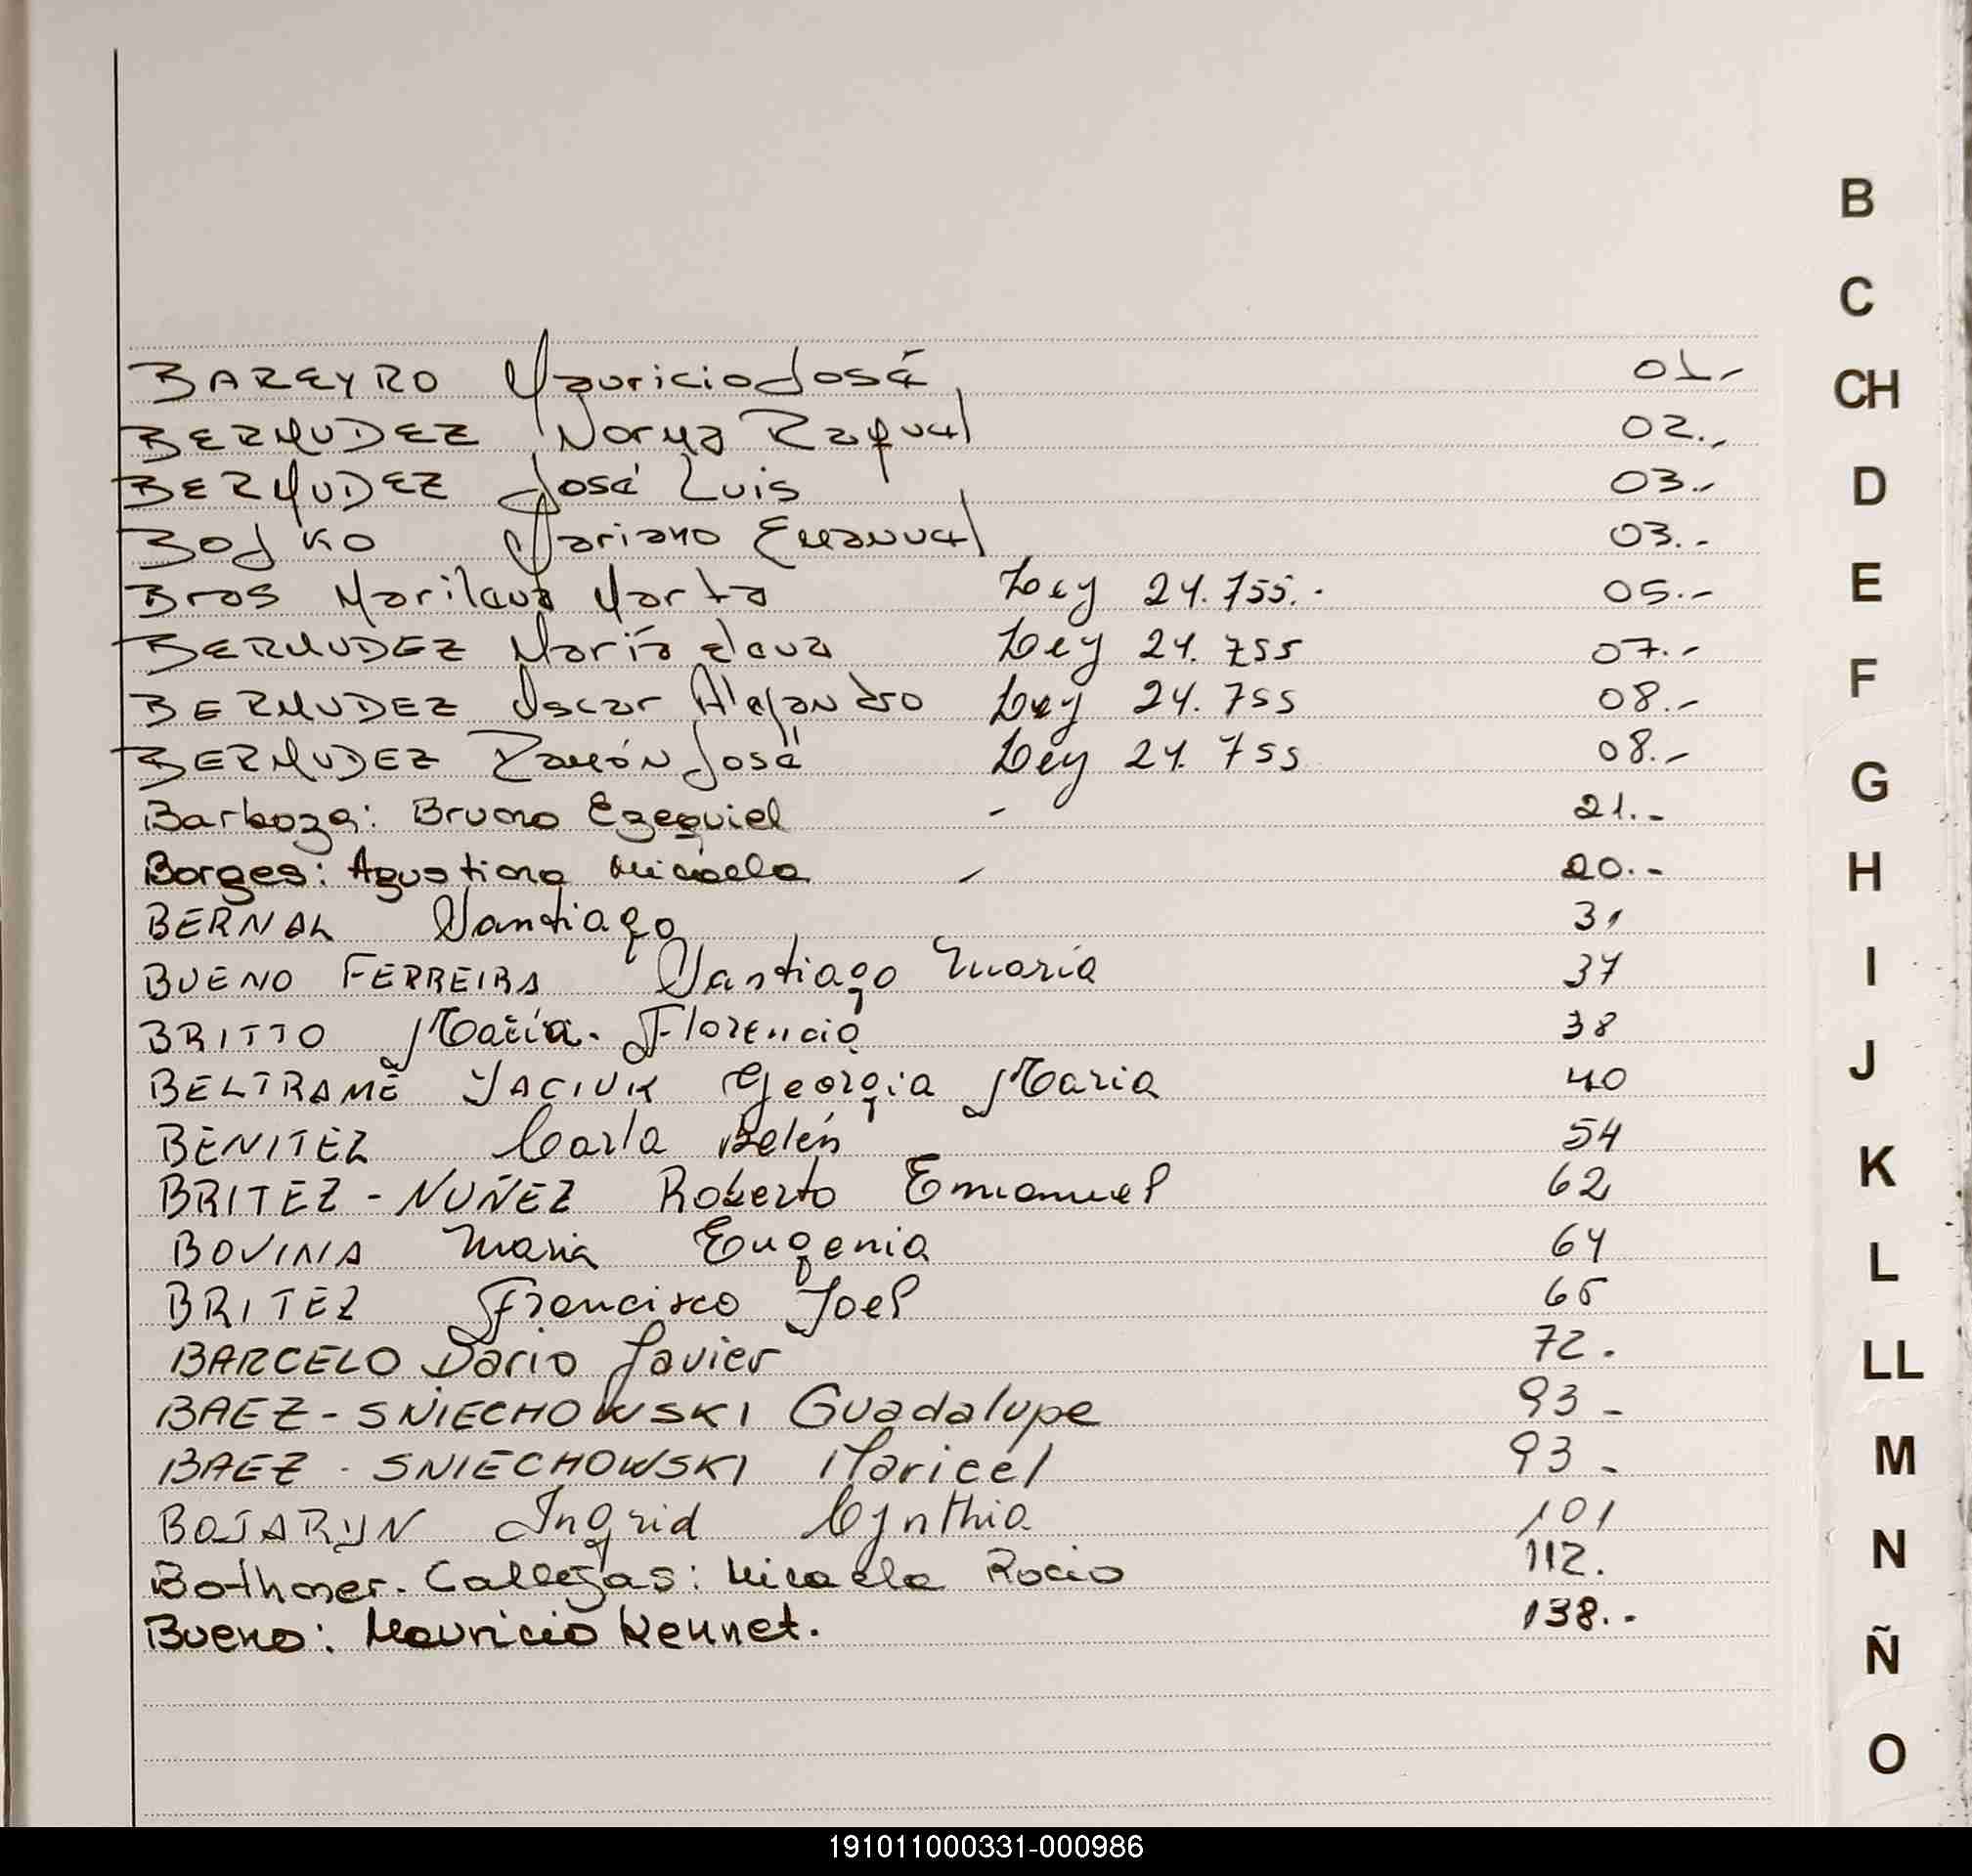 BAREYRO Mauricio José 01.-
BERMUDEZ Norma Raquel 02.-
BERMUDEZ José Luis 03.-
BOJKO Mariano Emanuel 03.-
Bros Marilena Marta Ley 24.755.- 05.-
BERMUDEZ María elena Ley 24.755 07.-
BERMUDEZ Oscar Alejandro Ley 24.755 08.-
BERMUDEZ Ramón José Ley 24.755 08.-
Barboza: Bruno Ezequiel - 21.-
Borges: Agustina Micaela - 20.-
BERNAL Santiago 31
BUENO FERREIRA Santiago María 37
BRITTO María Florencia 38
BELTRAME YACIUK Georgia Maria 40
BENITEZ Carla Belén 54
BRITEZ - NUÑEZ Roberto Emmanuel 62
BOVINA Maria Eugenia 64
BRITEZ Francisco Joel 65
BARCELO Dario Javier 72.
BAEZ - SNIECHOWSKI Guadalupe 93 -
BAEZ - SNIECHOWSKI Maricel 93 -
BOJARYN Ingrid Cynthia 101
Bothner. Callejas: Micaela Rocio 112.
Bueno: Mauricio Kennet. 138.-
B
C
CH
D
E
F
G
H
I
J
K
L
LL
M
N
Ñ
O
191011000331-000986